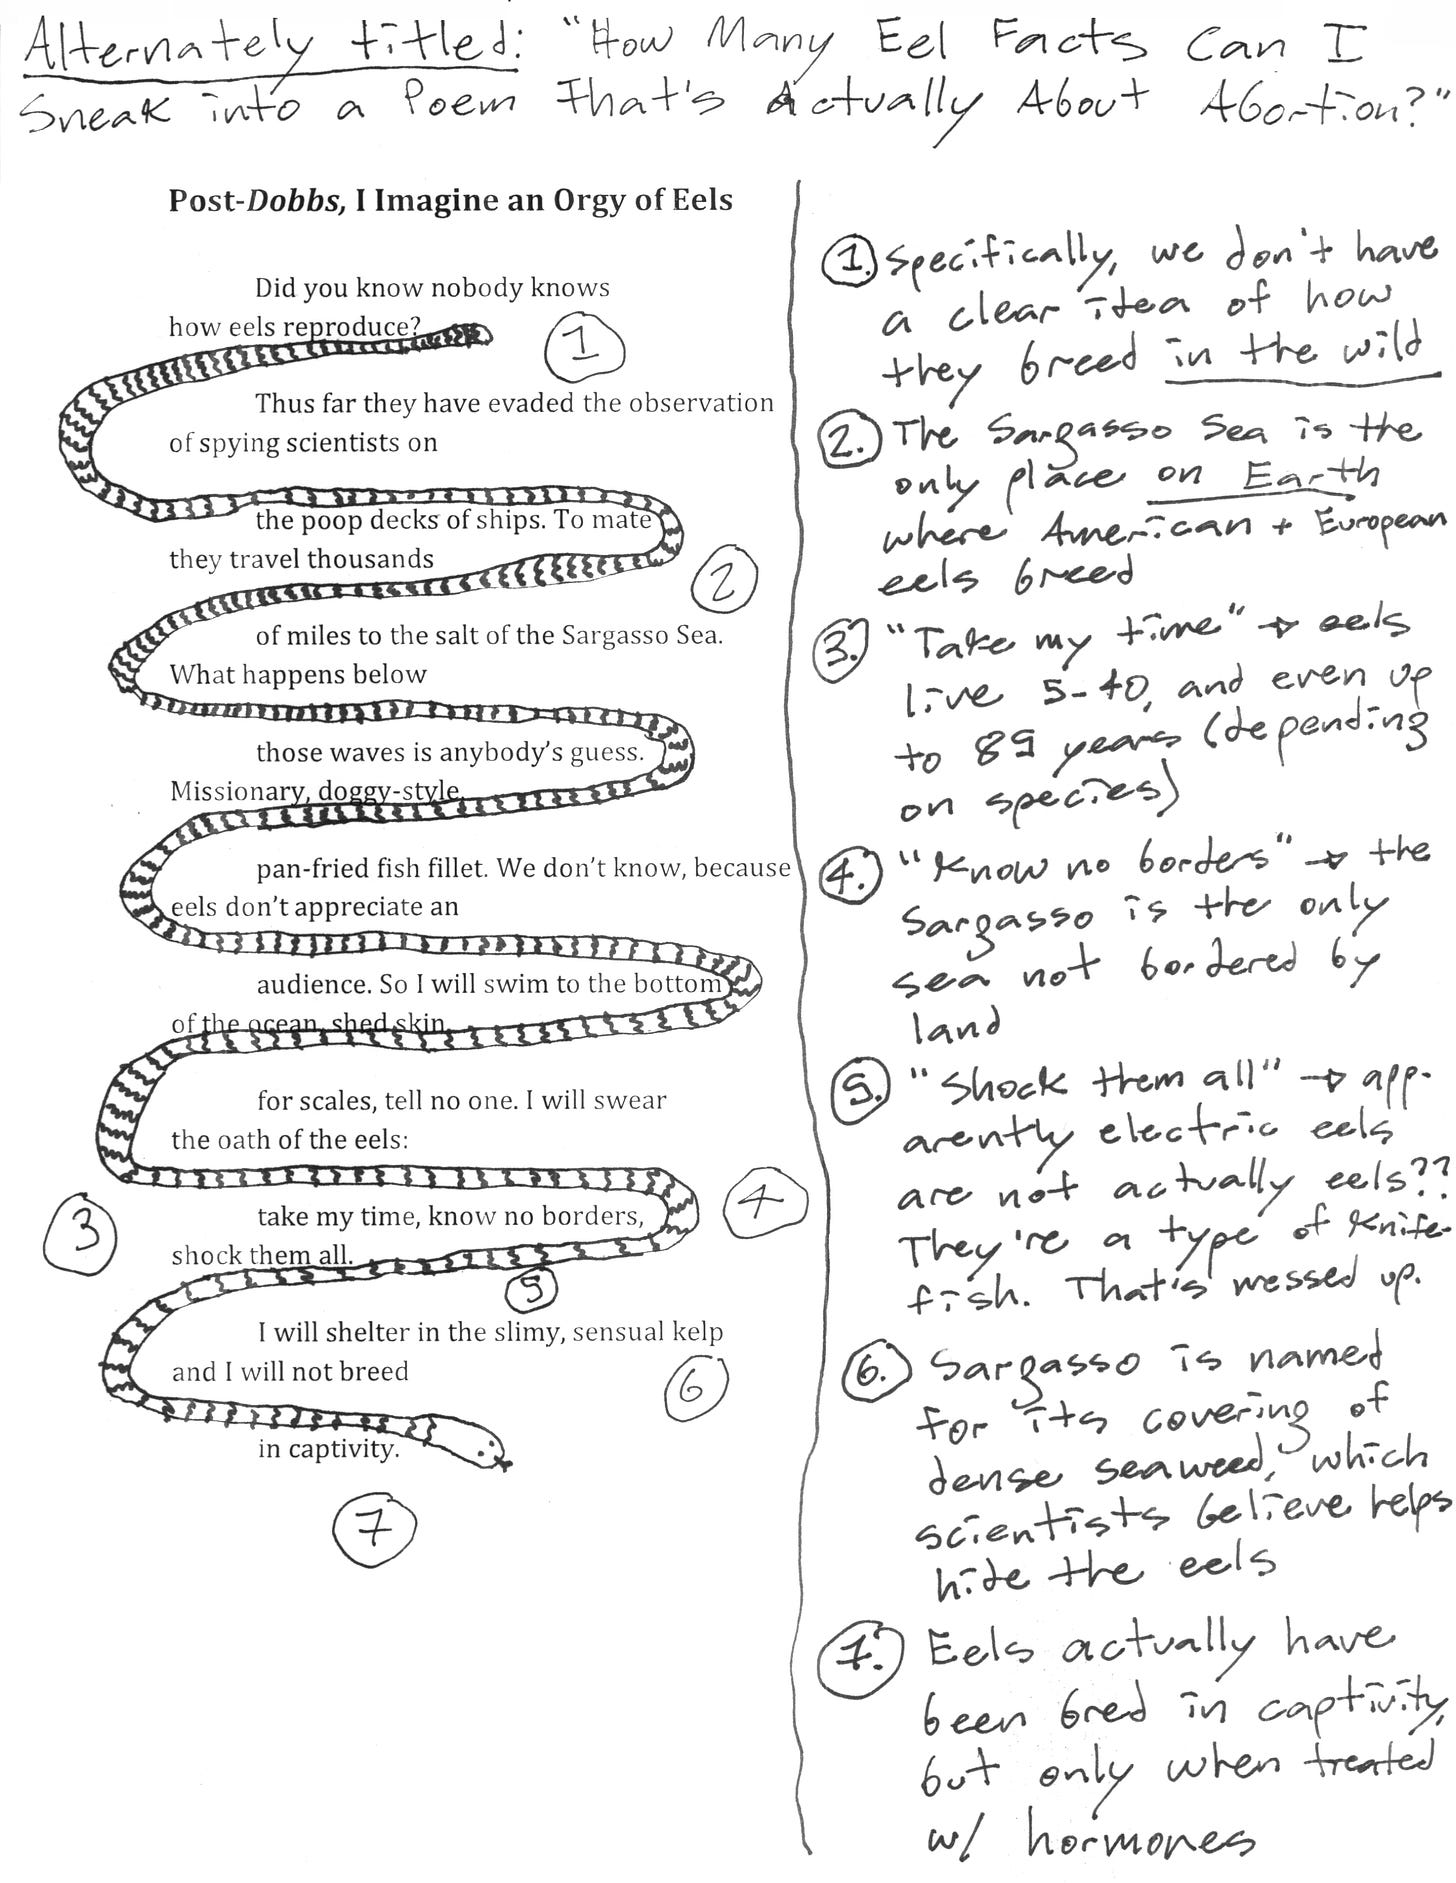 Alternately titled: "How Many Eel Facts Can I
Sneak into a Poem That's Actually About Abortion?"
Post-Dobbs, I Imagine an Orgy of Eels
Did you know nobody knows
how eels reproduce?
1
Thus far they have evaded the observation
of spying scientists on
the poop decks of ships. To mate
they travel thousands
2
of miles to the salt of the Sargasso Sea.
What happens below
those waves is anybody's guess.
Missionary, doggy-style,
pan-fried fish fillet. We don't know, because
eels don't appreciate an
audience. So I will swim to the bottom
of the ocean, shed skin
for scales, tell no one. I will swear
the oath of the eels:
3
take my time, know no borders,
4
shock them all.
5
I will shelter in the slimy, sensual kelp
and I will not breed
6
in captivity.
7
1. Specifically, we don't have
a clear idea of how
they breed in the wild
2. The Sargasso Sea is the
only place on Earth
where American + European
eels breed
3. "Take my time" → eels
live 5-40, and even up
to 89 years (depending
on species)
4. "Know no borders" → the
Sargasso is the only
sea not bordered by
land
5. "Shock them all" → app-
arently electric eels
are not actually eels??
They're a type of knife-
fish. That's messed up.
6. Sargasso is named
for its covering of
dense seaweed, which
scientists believe helps
hide the eels
7. Eels actually have
been bred in captivity,
but only when treated
w/ hormones